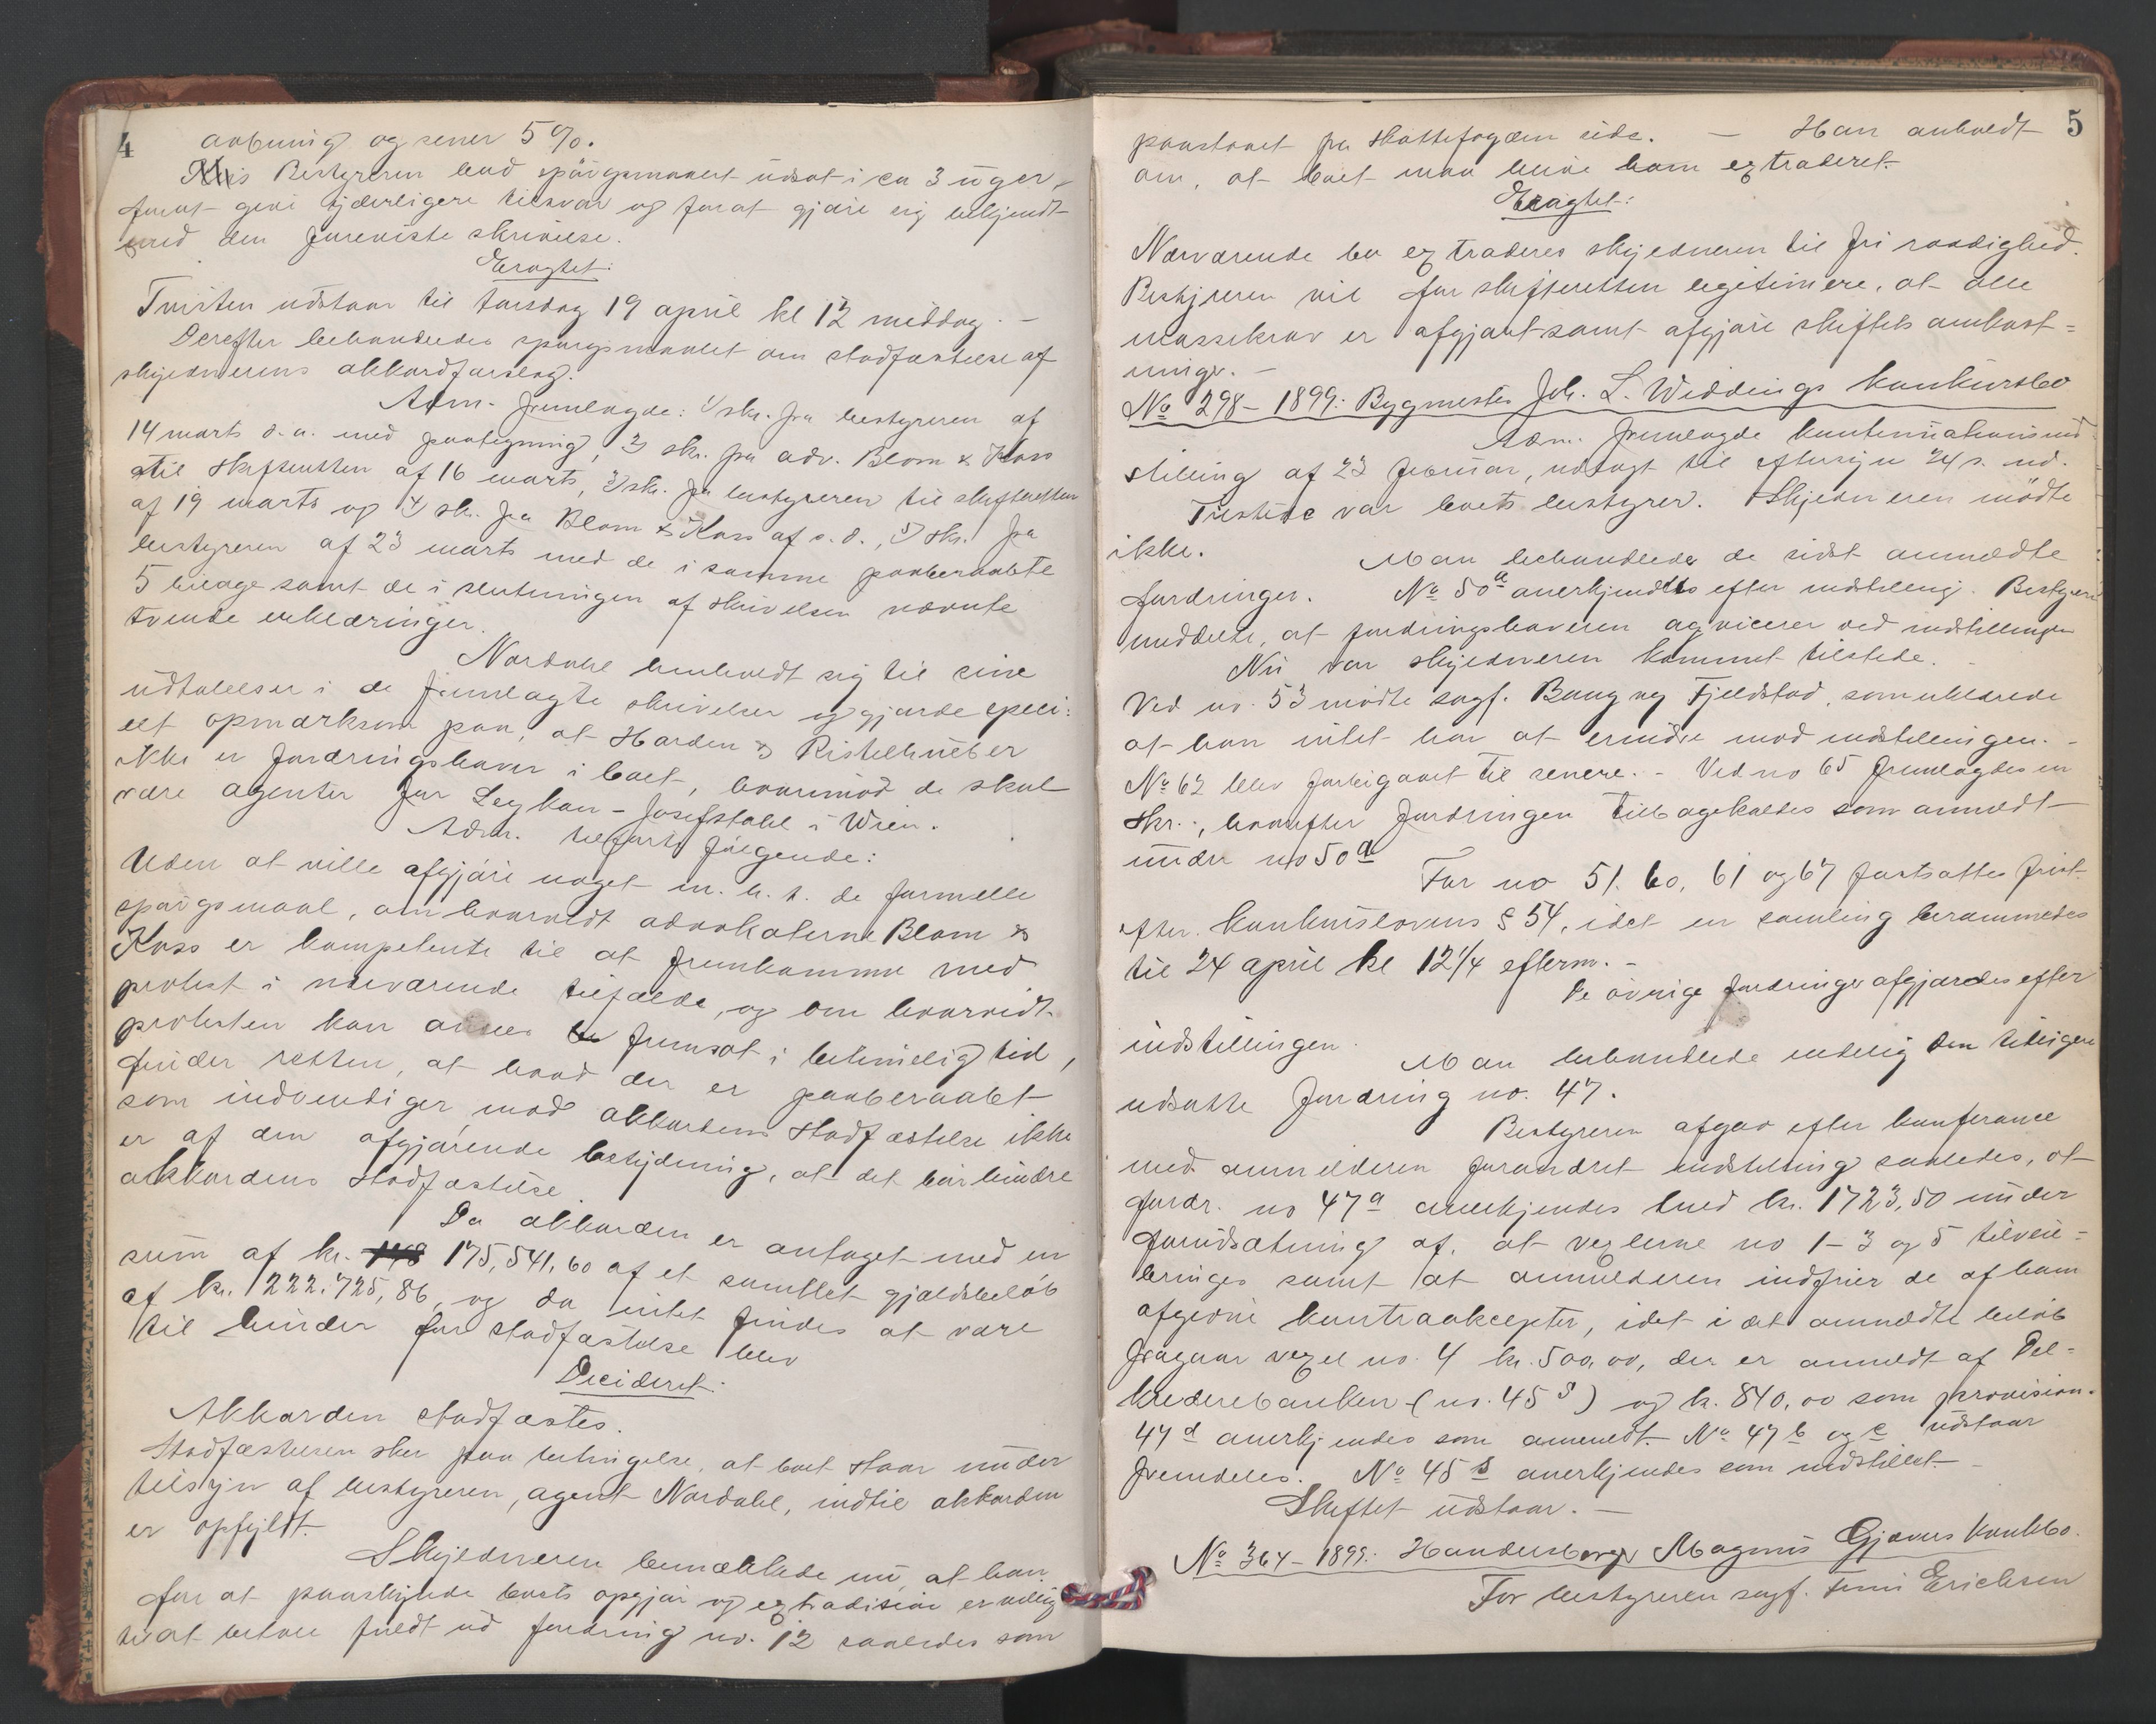 4
og senere 5 %.
Bestyreren bad spörgsmaalet udsat i ca 3 uger,
forat give tilsvar og forat gjøre sig bekjendt
med den fremviste skrivelse.
Eragtet:
Tvisten udstaar til torsdag 19 april kl 12 middag. –
Derefter behandledes spørgsmaalet om stadfæstelse af
skyldnerens akkordforslag.
Adm. fremlagde: 1) skr. fra bestyreren af
14 marts d. a. med paategning, 2) skr. fra adv. Blom & Koss
til skifteretten af 16 marts, 3) skr. fra bestyreren til skifteretten
af 19 marts og 4) skr. fra Blom & Koss af s. d., 5) skr. fra
bestyreren af 23 marts med de i samme paaberaabte
5 bilage samt de i slutningen af skrivelsen nævnte
tvende erklæringer.
Nordahl henholdt sig til sine
udtalelser i de fremlagte skrivelser og gjorde speci-
elt opmærksom paa, at Harden & Ristelhueber
ikke er fordringshaver i boet, hvorimod de skal
være agenter for Leykam-Josefsthal i Wien.
Adm. tilførte følgende:
Uden at ville afgjøre noget m. h. t. de formelle
spørgsmaal, om hvorvidt advokaterne Blom &
Koss er kompetente til at fremkomme med
protest i nærværende tilfælde, og om hvorvidt
protesten kan ansees fremsat i betimelig tid,
finder retten, at hvad der er paaberaabt
som indvendiger mod akkordens stadfæstelse ikke
er af den afgjørende betydning, at det bør hindre
akkordens stadfæstelse.
Da akkorden er antaget med en
sum af kr. 175,541,60 af et samlet gjældsbeløb
af kr. 222.725,86, og da intet findes at være
til hinder for stadfæstelse blev
Decideret:
Akkorden stadfæstes.
Stadfæstelsen sker paa betingelse, at boet staar under
tilsyn af bestyreren, agent Nordahl, indtil akkorden
er opfyldt.
Skyldneren bemærkede nu, at han
for at paaskynde boets opgjør og extradition er villig
til at betale fuldt ud fordring no. 12 saaledes som
5
paastaaet fra skattefogdens side. – Han anholdt
om, at boet maa blive ham extraderet.
Eragtet:
Nærværende bo extraderes skyldneren til fri raadighed.
Bestyreren vil for skifteretten legitimere, at alle
massekrav er afgjort samt afgjøre skiftets omkost-
ninger. –
No 298 – 1899: Bygmester Joh. L. Widdings konkursbo
Adm. fremlagde kontinuationsind-
stilling af 23 februar, udlagt til eftersyn 24 s. md.
Tilstede var boets bestyrer. Skyldneren mödte
ikke.
Man behandlede de sidst anmeldte
fordringer. No 50a anerkjendtes efter indstilling. Bestyreren
meddelte, at fordringshaveren acquiescerer ved indstillingen
Nu var skyldneren kommet tilstede.
Ved no. 53 mødte sagf. Baug og Fjeldstad, som erklærede
at han intet har at erindre mod indstillingen. –
No 62 blev forbigaaet til senere. – Ved no 65 fremlagdes en
skr., hvorefter fordringen tilbagekaldes som anmeldt
under no 50a
For no 51. 60, 61 og 67 fastsattes frist
efter konkurslovens § 54, idet en samling berammedes
til 24 april kl 12 1/4 efterm. –
De øvrige fordringer afgjordes efter
indstillingen.
Man behandlede endelig den tidligere
udsatte fordring no. 47.
Bestyreren afgav efter konferance
med anmelderen forandret indstilling saaledes, at
fordr. no 47a anerkjendes med kr. 1723,50 under
forudsætning af, at vexlerne no 1–3 og 5 tilveie-
bringes samt at anmelderen indfrier de af ham
afgivne kontraakcepter, idet i det anmeldte beløb
fragaar vexel no. 4 kr. 500,00, der er anmeldt af Del-
krederebanken (no. 45s) og kr. 840,00 som provision.
47d anerkjendes som anmeldt. No 47b og c udstaar
fremdeles. No 45s anerkjendes som indstillet. –
Skiftet udstaar. –
No 364 – 1899: Handelsborger Magnus Gjøvus konkbo.
For bestyreren sagf. Erichsen